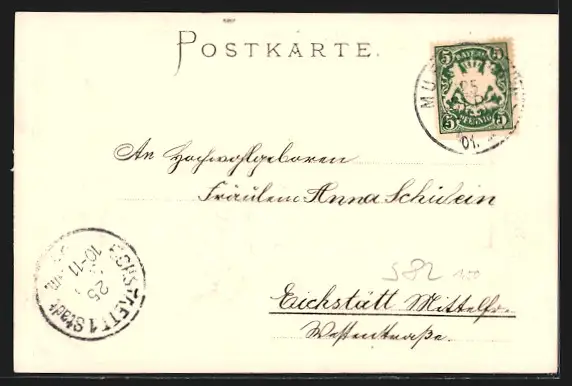 POSTKARTE.
BAYERN
5 5
5 PFENNIG 5
MÜ
25
01.
An Hochwohlgeboren
Fräulein Anna Schwein
582 100
Eichstätt Mittelfr.
Westentraße.
EICHSTAETT 1 Stadt
25
10-11